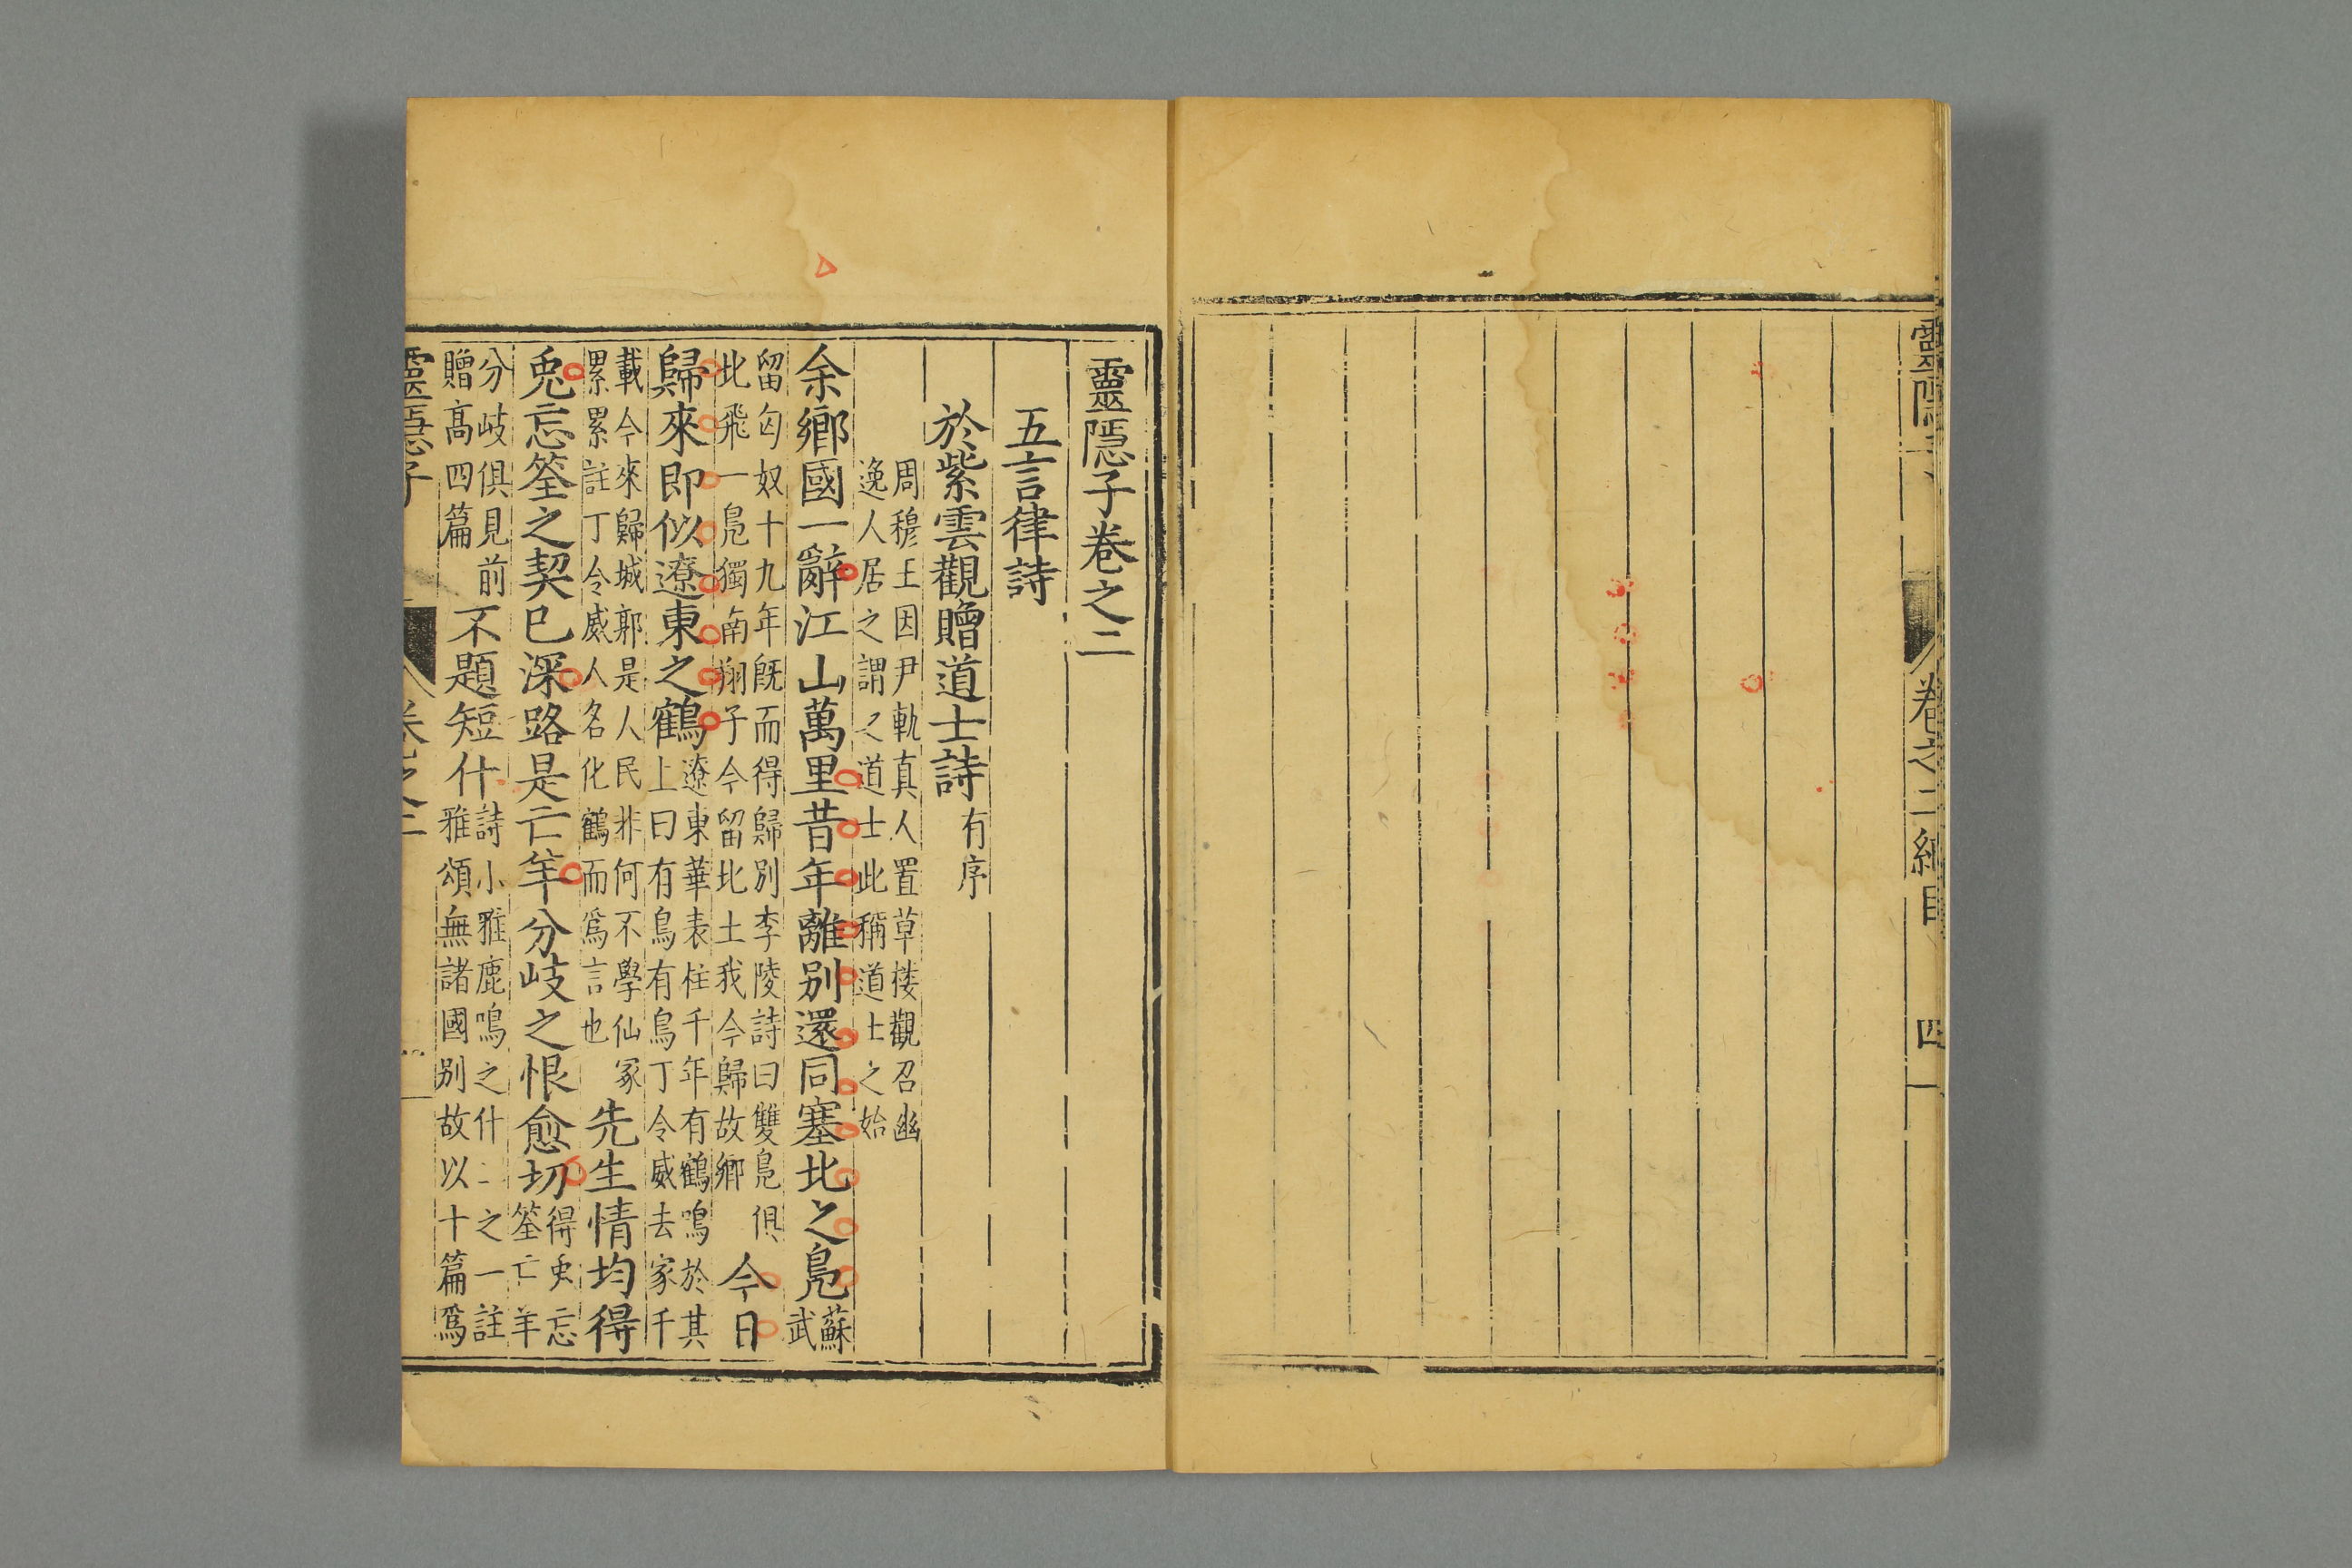 靈隱子 卷之二總目 四
靈隱子卷之二
五言律詩
於紫雲觀贈道士詩有序
周穆王因尹軌真人置草楼觀召幽
逸人居之謂之道士此稱道士之始
余鄉國一辭江山萬里昔年離別還同塞北之鳧蘇武
留匈奴十九年旣而得歸別李陵詩曰雙鳧俱
北飛一鳧獨南翔子今留北土我今歸故鄉今日
歸來即似遼東之鶴遼東華表柱千年有鶴鳴於其
上曰有鳥有鳥丁令威去家千
載今來歸城郭是人民非何不學仙冢
累累註丁令威人名化鶴而爲言也先生情均得
兎忘筌之契已深路是亡羊分岐之恨愈切得兎忘
筌亡羊
分岐俱見前
贈高四篇不題短什詩小雅鹿鳴之什二之一註
雅頌無諸國別故以十篇爲
靈隱子 卷之二